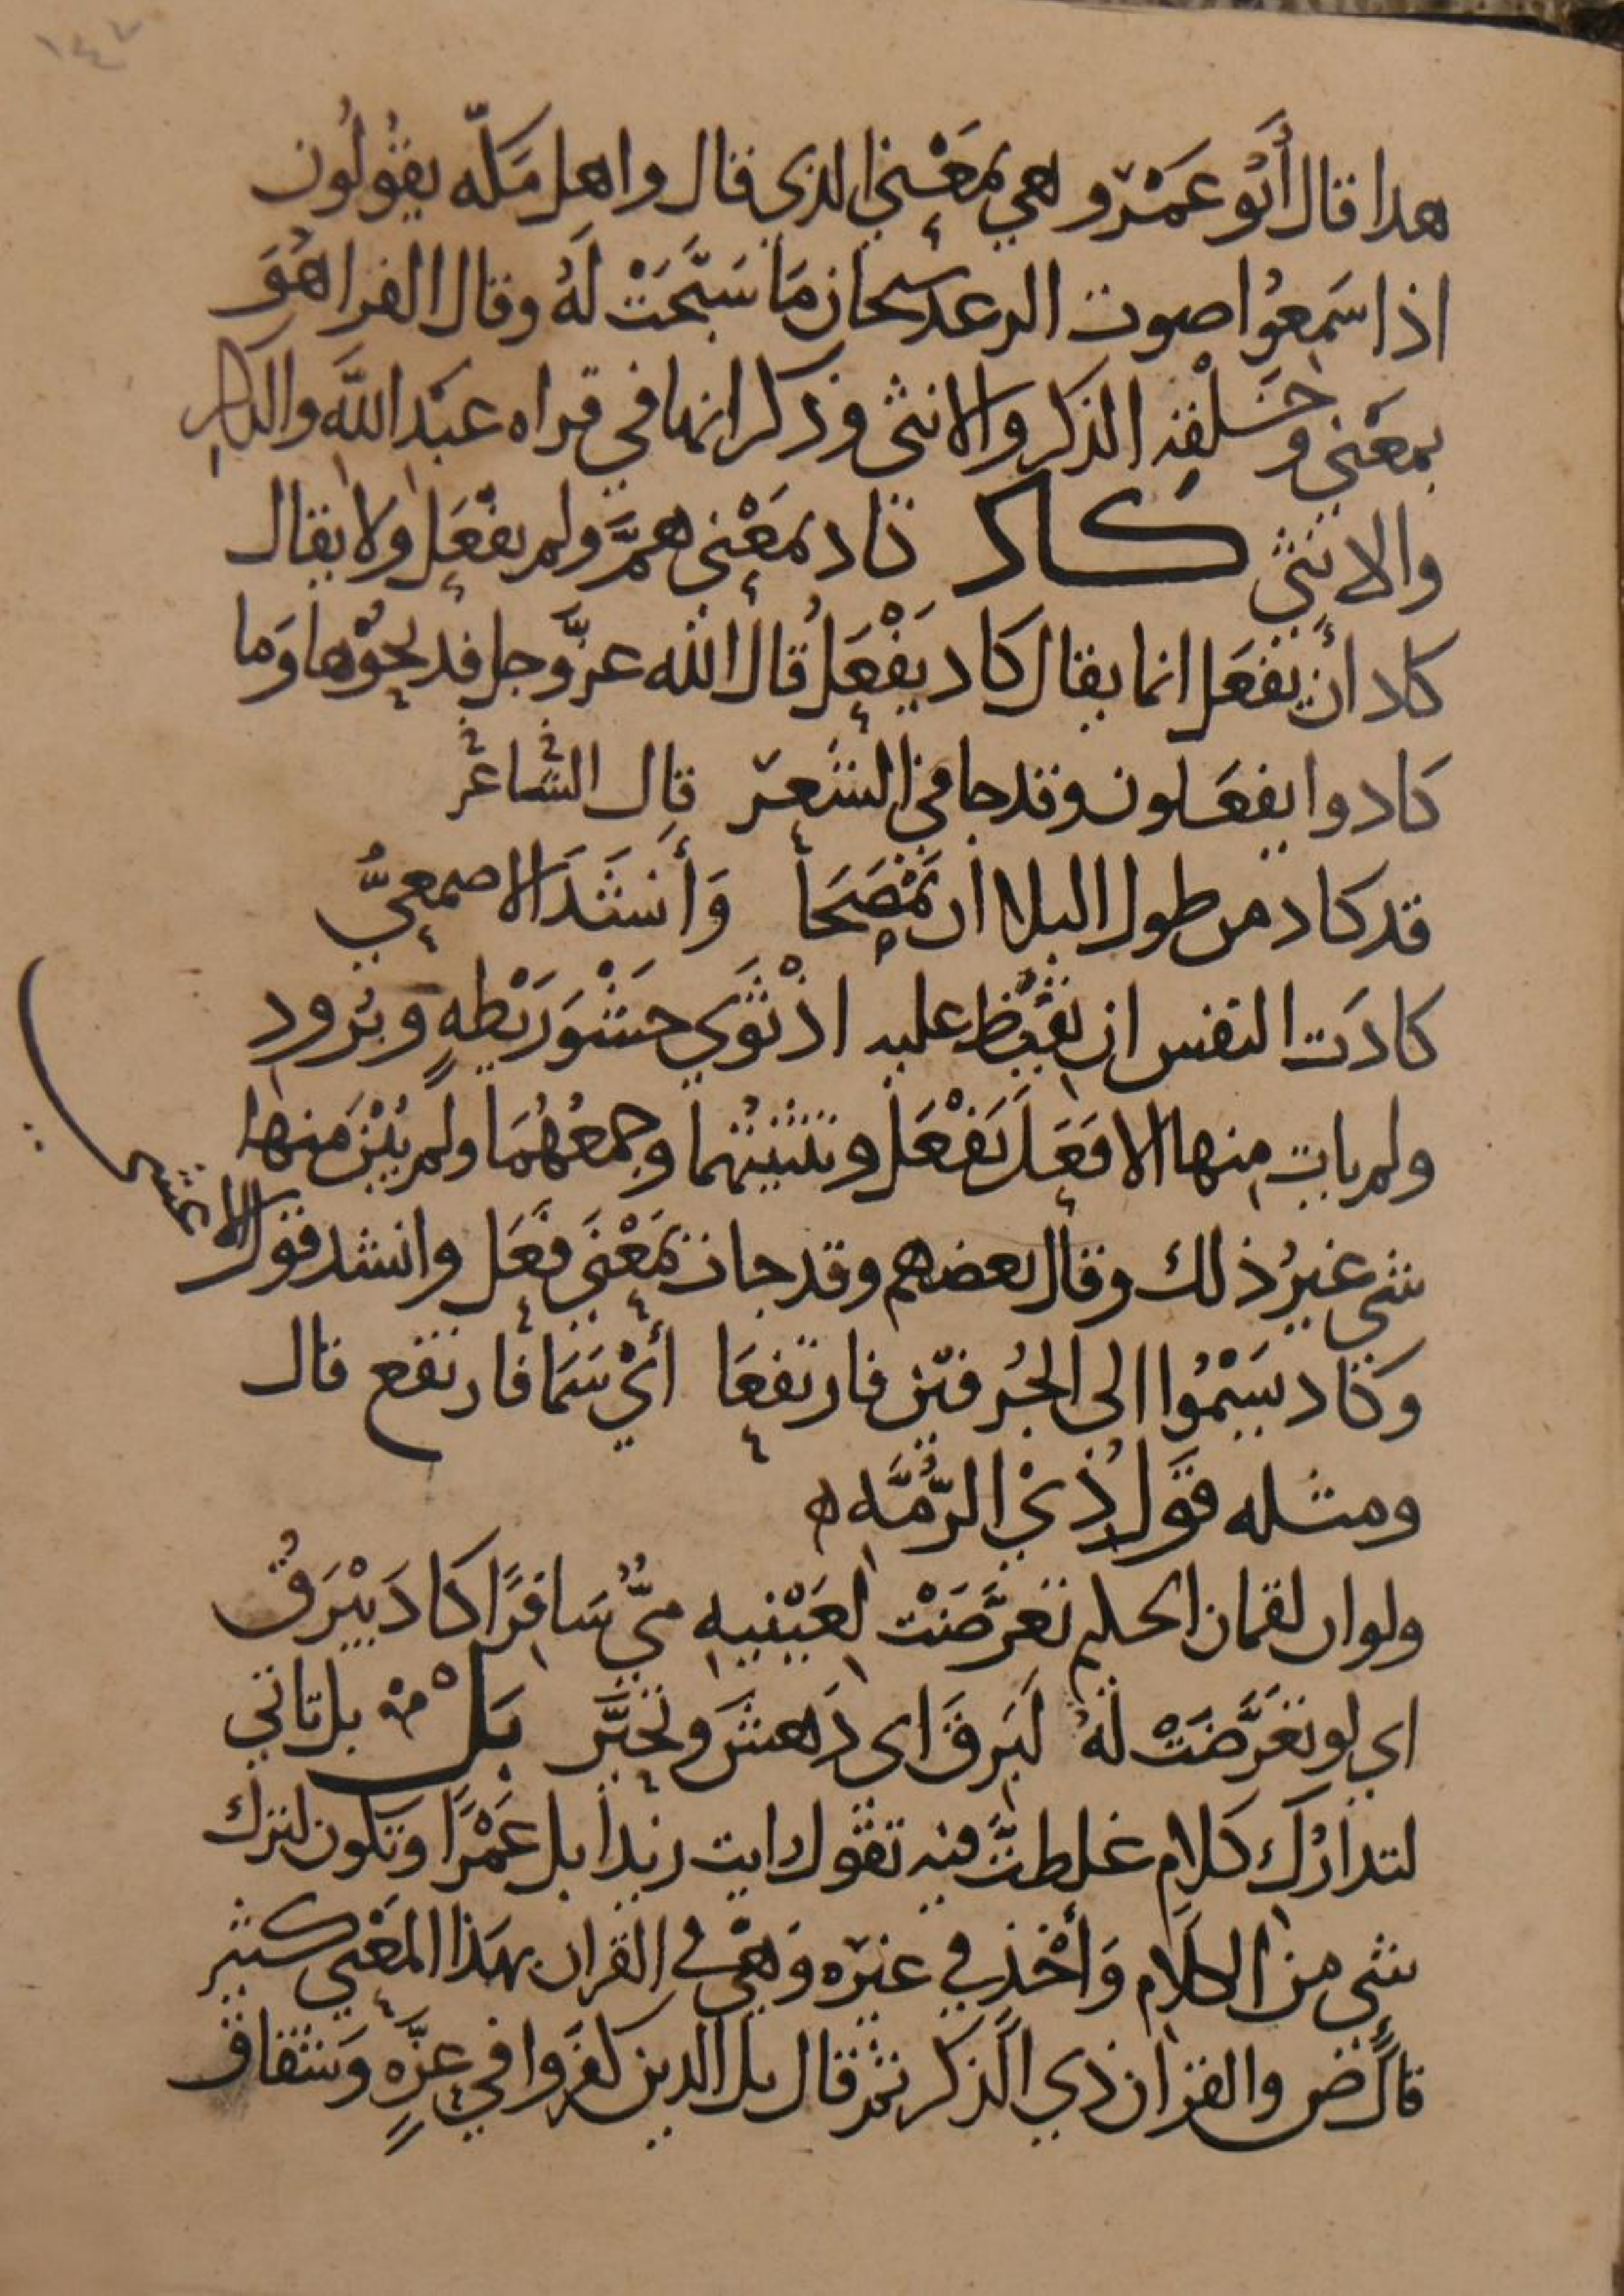 ١٤٧
هدا قال أَبُو عَمْرٍو وهي بمَعْنى الذي قال واهل مَكّه يقُولُون
اذا سَمِعُوا صوت الرعد سبحان مَا سَبَّحَتْ لَهُ وقال الفرا هُوَ
بمعْنى وخَلْقِهِ الذكر والانثى وذكر انها في قراه عَبْد اللَّه والذكرِ
والانثى كَاد كاد بمَعْنى همَّ ولم يفعَل ولا يقال
كاد أن يفعَل انما يقال كاد يَفْعَلُ قال الله عزَّ وجل فذبحُوْها وَما
كادوا يفعَلون وقد جا في الشعر قال الشاعر
قد كاد من طول البلا ان يَمْصَحَا وَأنشَدَ الاصمعيُّ
كادَت النفس ان تَفِيْظ عليه اذ ثوَى حَشْوَ رَيْطهٍ وبُرودِ
ولم يات منها الا فعَل يَفْعَل وتثنيتهُما وجمعُهُمَا ولم يُبْنَ منها
شي غيرُ ذلك وقال بعضهم وقد جات بمَعْنَى فَعَل وانشد قول الاعشى
وَكاد يَسْمُوا الى الجُرفيْن فارتفعَا أيْ سَمَا فارتفع قال
ومثله قَوَل ذِيْ الرُّمَّه ه
ولو ان لقمان الحكيم تعَرَّضَتْ لعَيْنيهِ مَيٌّ سَافِرًا كادَ يبْرَقُ
اي لو تعَرَّضَتْ لَهُ لَبَرِقَ اى دَهشَ وتحيَّر بَلْ بل تاتي
لتدارُك كَلام غلطتَّ فيه تقول رايت زيدا بل عَمْرًا وتكون لترك
شي من الكلام وَأخْذٍ في غيْرِه وَهْيَ في القرآن بهَذا المَعْنى كثير
قالَ ص والقرآن ذي الذكر ثم قال بل الدين كفَروا في عِزَّهٍ وَشقاق